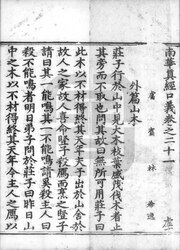 南華真經口義卷之二十一
鬳齋 林 希逸
外篇山木
莊子行於山中見大木枝葉盛茂伐木者止
其旁而不取也問其故曰無所可用莊子曰
此木以不材得終其天年夫子出於山舍於
故人之家故人喜命豎子殺鴈而烹之豎子
請曰其一能鳴其一不能鳴請奚殺主人曰
殺不能鳴者明日弟子問於莊子曰昨日山
中之木以不材得終其天年今主人之鴈以